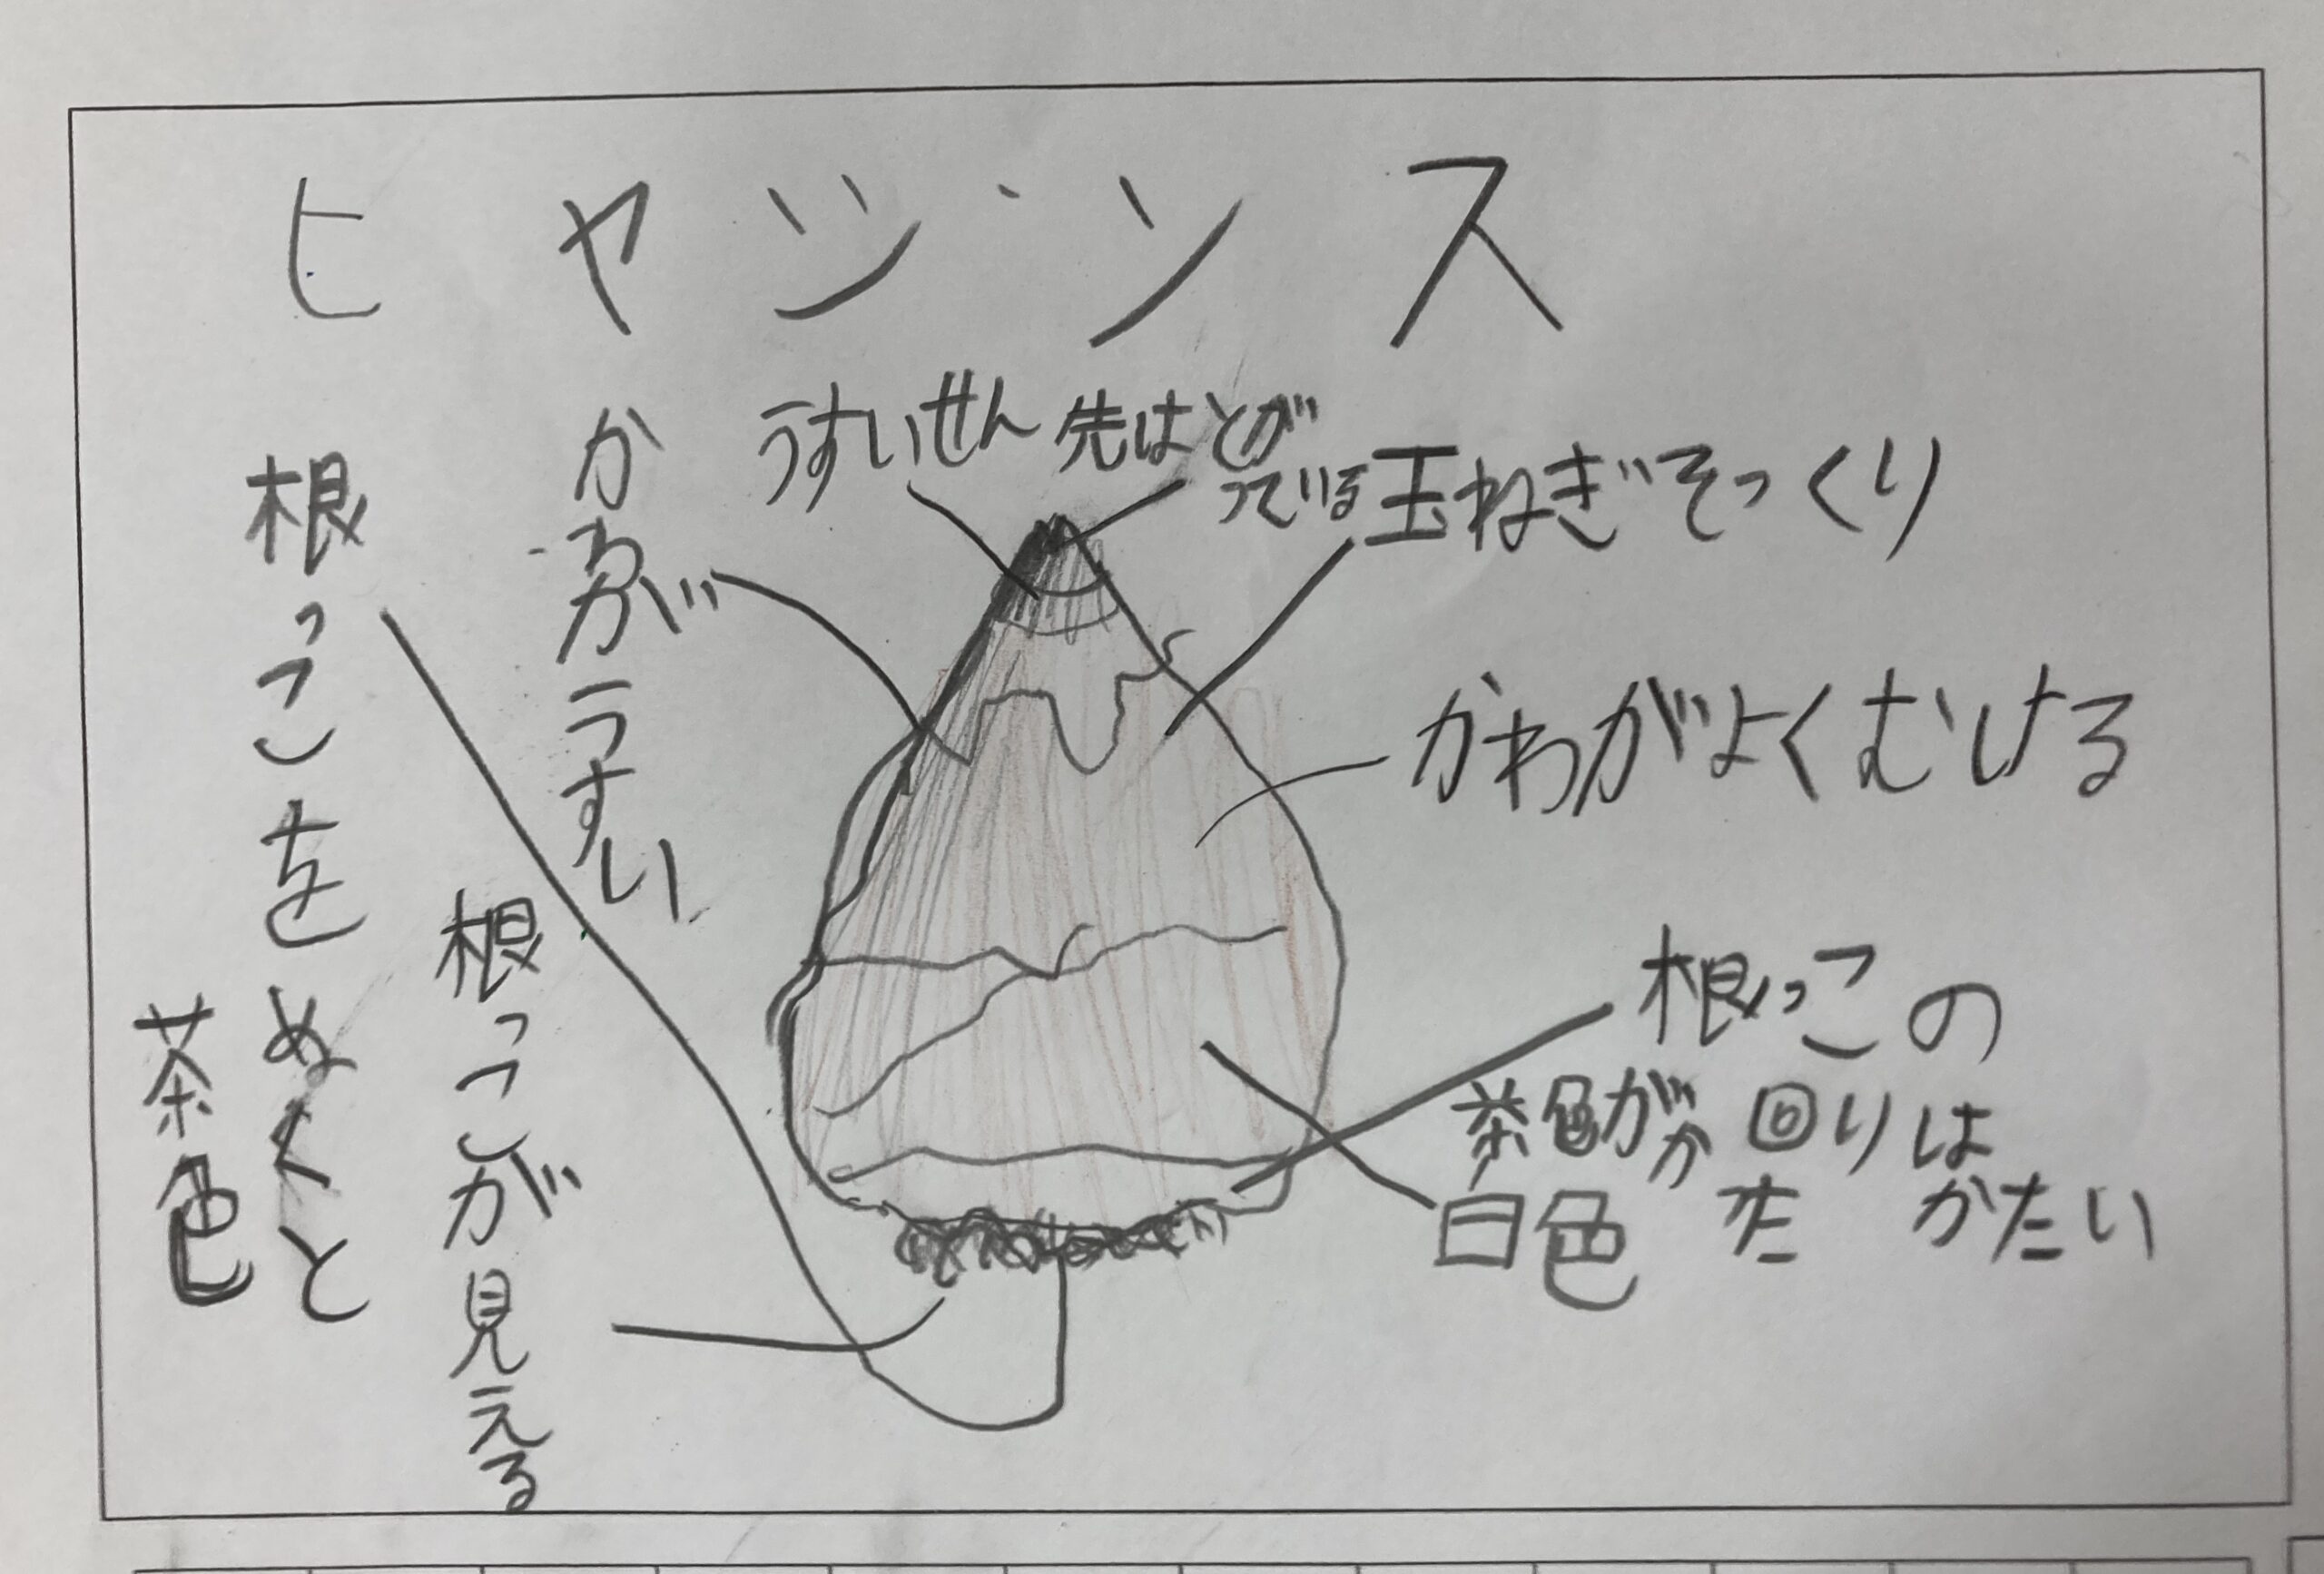 ヒヤシンス
うすいせん
先はとが
っている
玉ねぎそっくり
かわがよくむける
根っこの
回りは
かたい
茶色がか
た
白色
かわがうすい
根っこをぬくと
茶色
根っこが見える